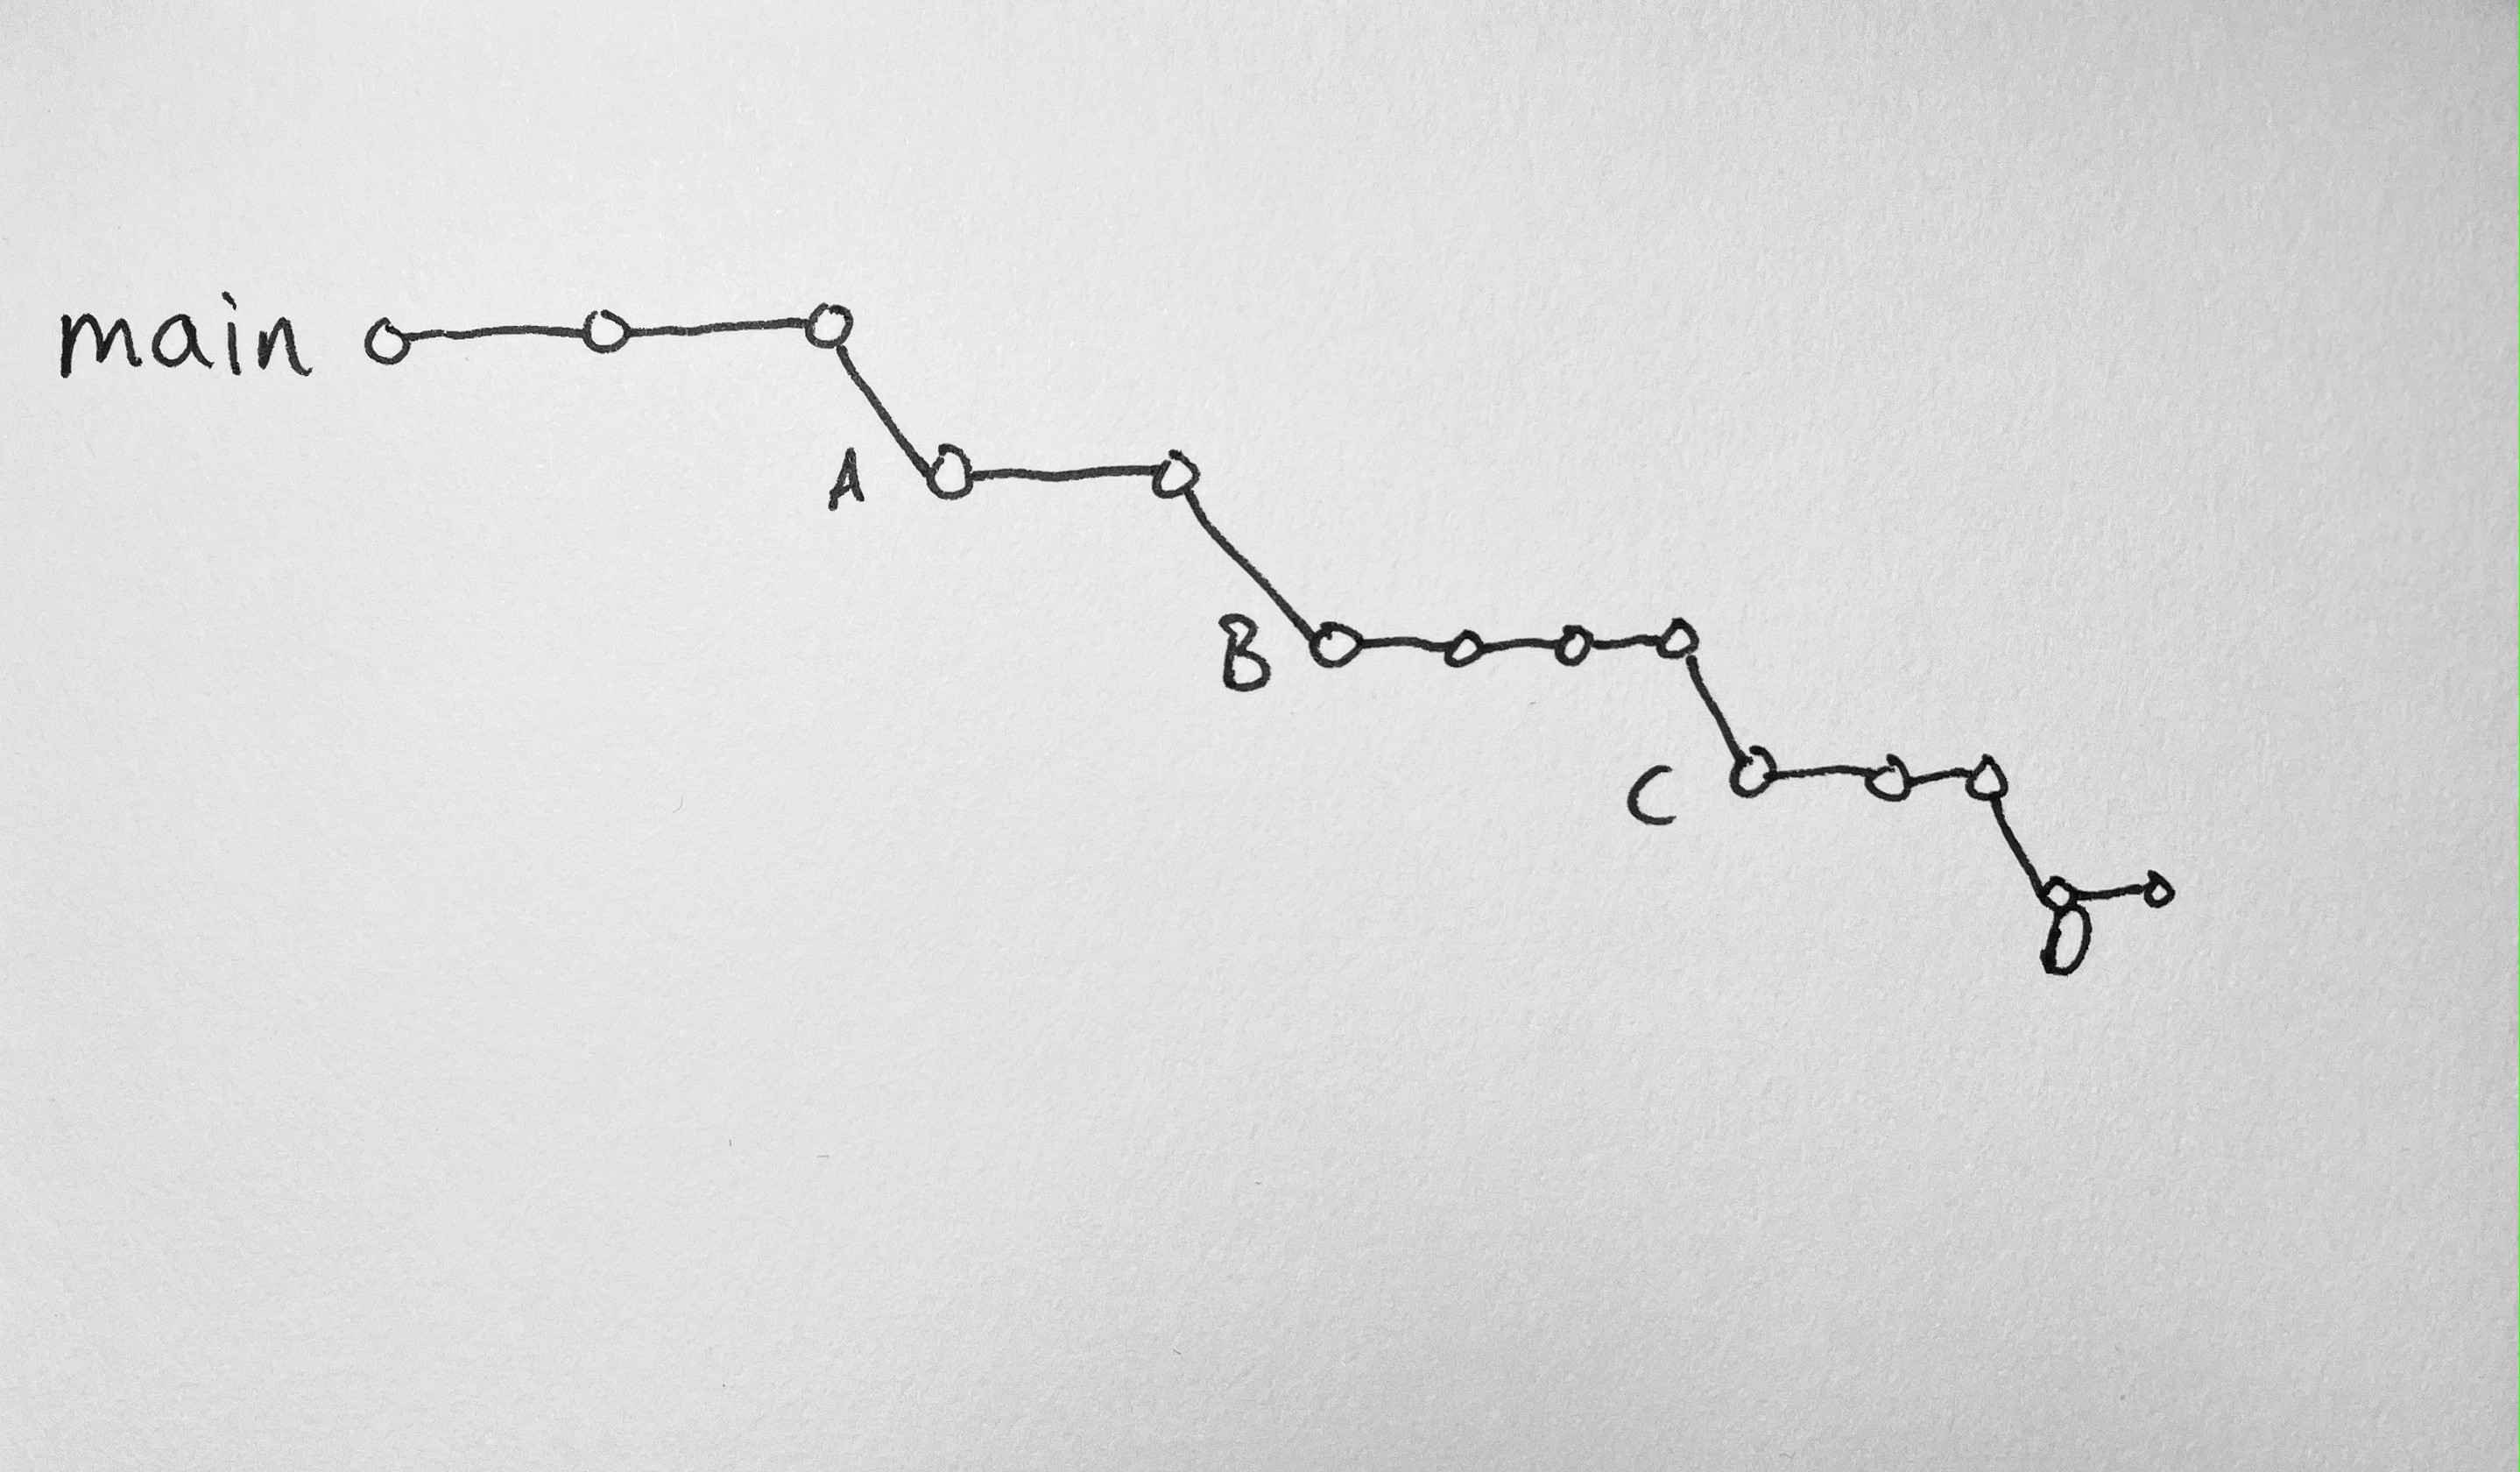 main
A
B
C
D